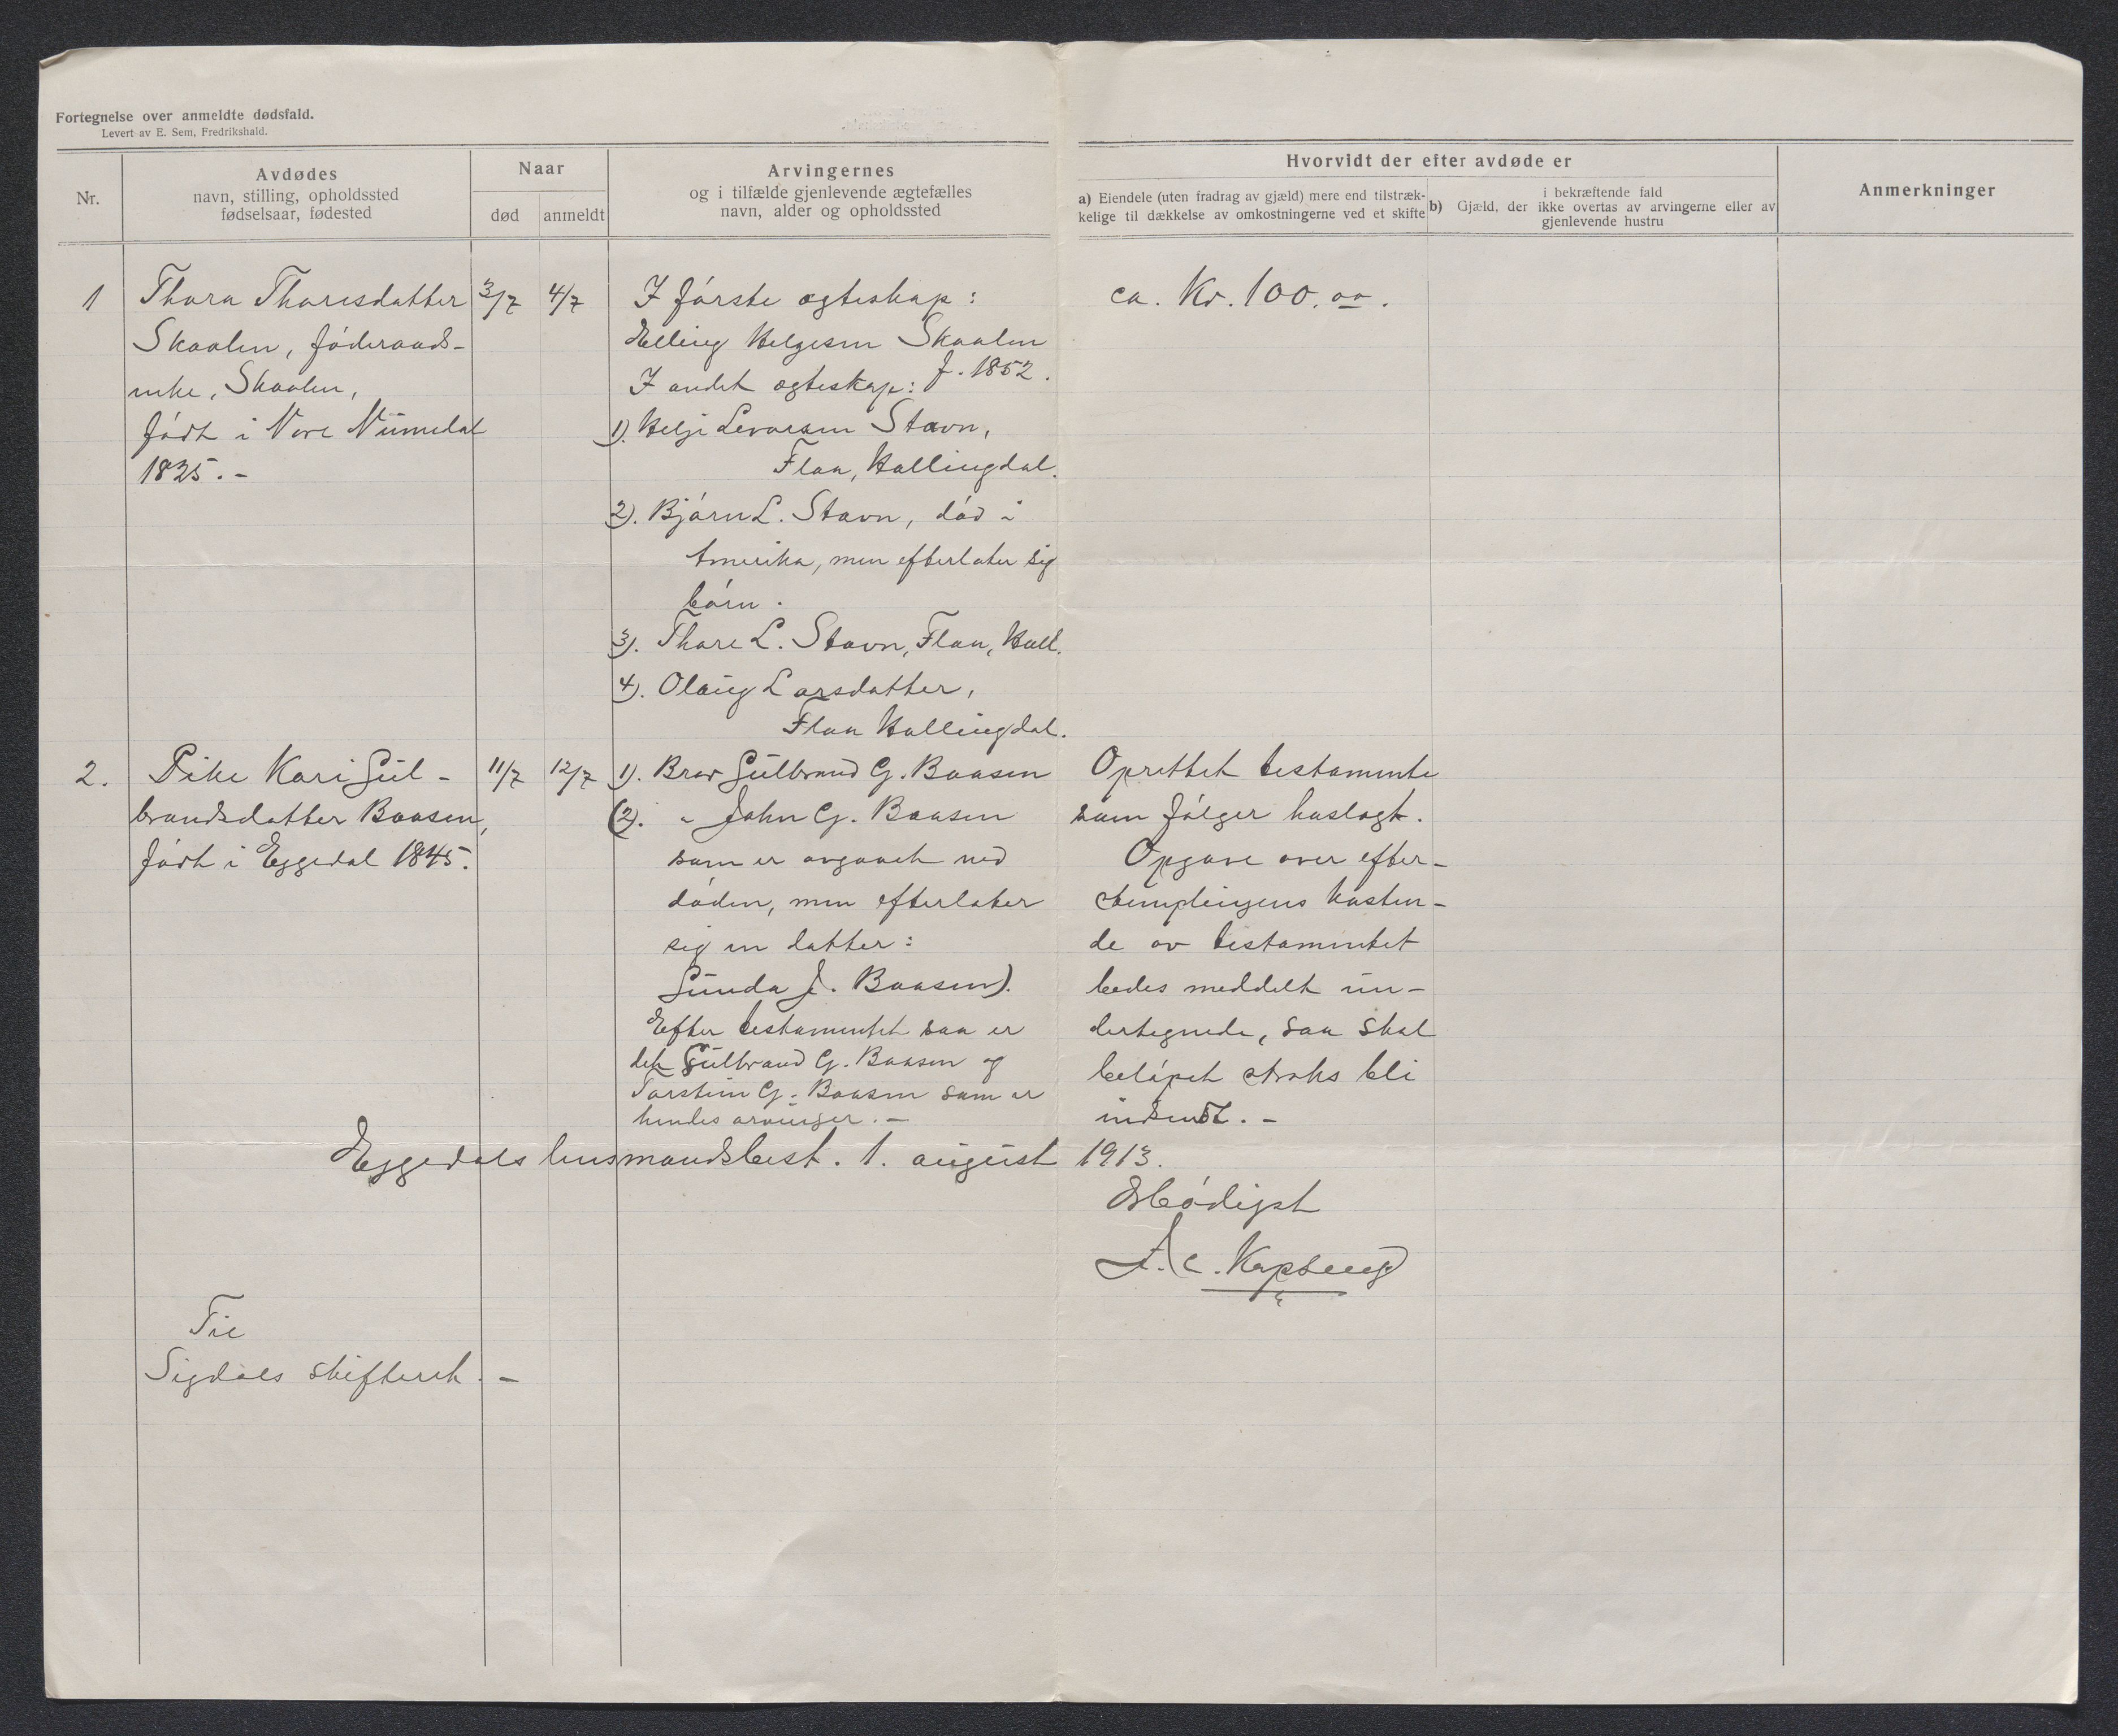 Fortegnelse over anmeldte dødsfald.
Levert av E. Sem, Fredrikshald.
Nr.
Avdødes
navn, stilling, opholdssted
fødselsaar, fødested
Naar
død
anmeldt
Arvingernes
og i tilfælde gjenlevende ægtefælles
navn, alder og opholdssted
Hvorvidt der efter avdøde er
a) Eiendele (uten fradrag av gjæld) mere end tilstræk-
kelige til dækkelse av omkostningerne ved et skifte
i bekræftende fald
b) Gjæld, der ikke overtas av arvingerne eller av
gjenlevende hustru
Anmerkninger
1
Thora Thoresdatter
Skaalen, føderaads-
enke, Skaalen,
født i Nore Numedal
1825. -
3/7
4/7
I første ægteskap:
Helling Helgesen Skaalen
f. 1852.
I andet ægteskap:
1). Helge Levorsen Stavn,
Flaa, Hallingdal.
2). Bjørn L. Stavn, død i
Amerika, men efterlater sig
børn.
3). Thore L. Stavn, Flaa, Hall.
4). Olaug Larsdatter,
Flaa Hallingdal.
ca. Kr. 100.00.
2.
Pike Kari Gul-
brandsdatter Baasen,
født i Eggedal 1845.
11/7
12/7
1). Bror Gulbrand G. Baasen
(2). " John G. Baasen
som er avgaaet ved
døden, men efterlater
sig en datter:
Gunda J. Baasen).
Efter testamentet saa er
det Gulbrand G. Baasen og
Torstein G. Baasen som er
hendes arvinger. -
Oprettet testamente
som følger hoslagt.
Opgave over efter-
stemplingens kosten-
de av testamentet
bedes meddelt un-
dertegnede, saa skal
beløpet straks bli
indsendt. -
Eggedals lensmandsbest. 1. august 1913.
Ærbødigst
A. C. Kopseng
Til
Sigdals skifteret. -